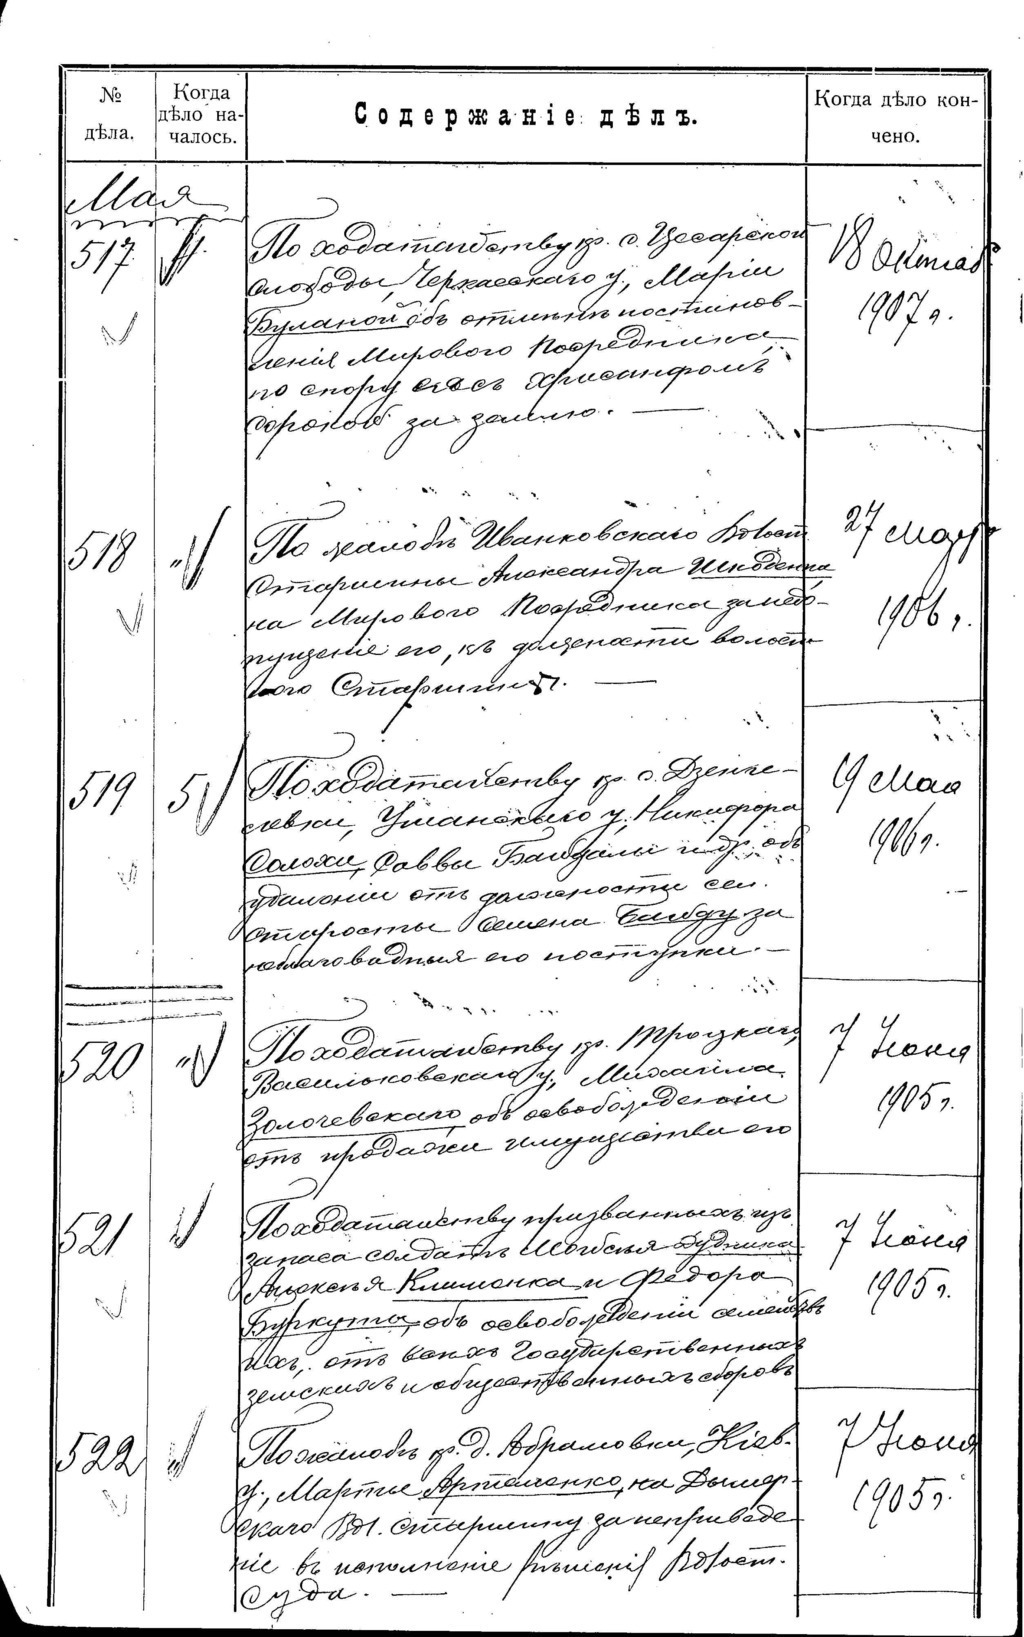 № дѣла.
Когда дѣло на-
чалось.
Содержаніе дѣлъ.
Когда дѣло кон-
чено.
Мая
517
4.
По ходатайству кр. с. Цесарской
слободы, Черкасскаго у., Маріи
Буланой объ отмѣнѣ постанов-
ленія Мирового Посредника
по спору ея съ Хрисанфомъ
за землю.
18 Октяб
1907 г.
518
"
По жалобѣ Иванковскаго Волост.
Старшины Александра
на Мирового Посредника за недо-
пущеніе его, къ должности волост-
ного Старшины.
27 Мар
1906 г.
519
5
По ходатайству кр. с. Дзенге-
левки, Уманскаго у, Никифора
Солохи, Саввы и др. объ
удаленіи отъ должности сел.
старосты Семена за
неблаговидныя его поступки.
19 Мая
1906 г.
520
"
По ходатайству кр. Троцкаго,
Васильковскаго у., Михаила
Золочевскаго, объ освобожденіи
отъ продажи имущества его
7 Іюня
1905 г.
521
"
По ходатайству призванныхъ изъ
запаса солдатъ Моисея Дудника
Алексѣя Клименка и Федора
Буркута, объ освобожденіи семействъ
ихъ, отъ всехъ Государственныхъ
земскихъ и общественныхъ сборовъ
7 Іюня
1905 г.
522
"
По жалобѣ кр. д. Абрамовки, Кіев.
у., Марты Артеменко, на Дымер-
скаго Вол. старшину за неприведе-
ніе въ исполненіе рѣшенія Волост.
Суда.
7 Іюня
1905 г.